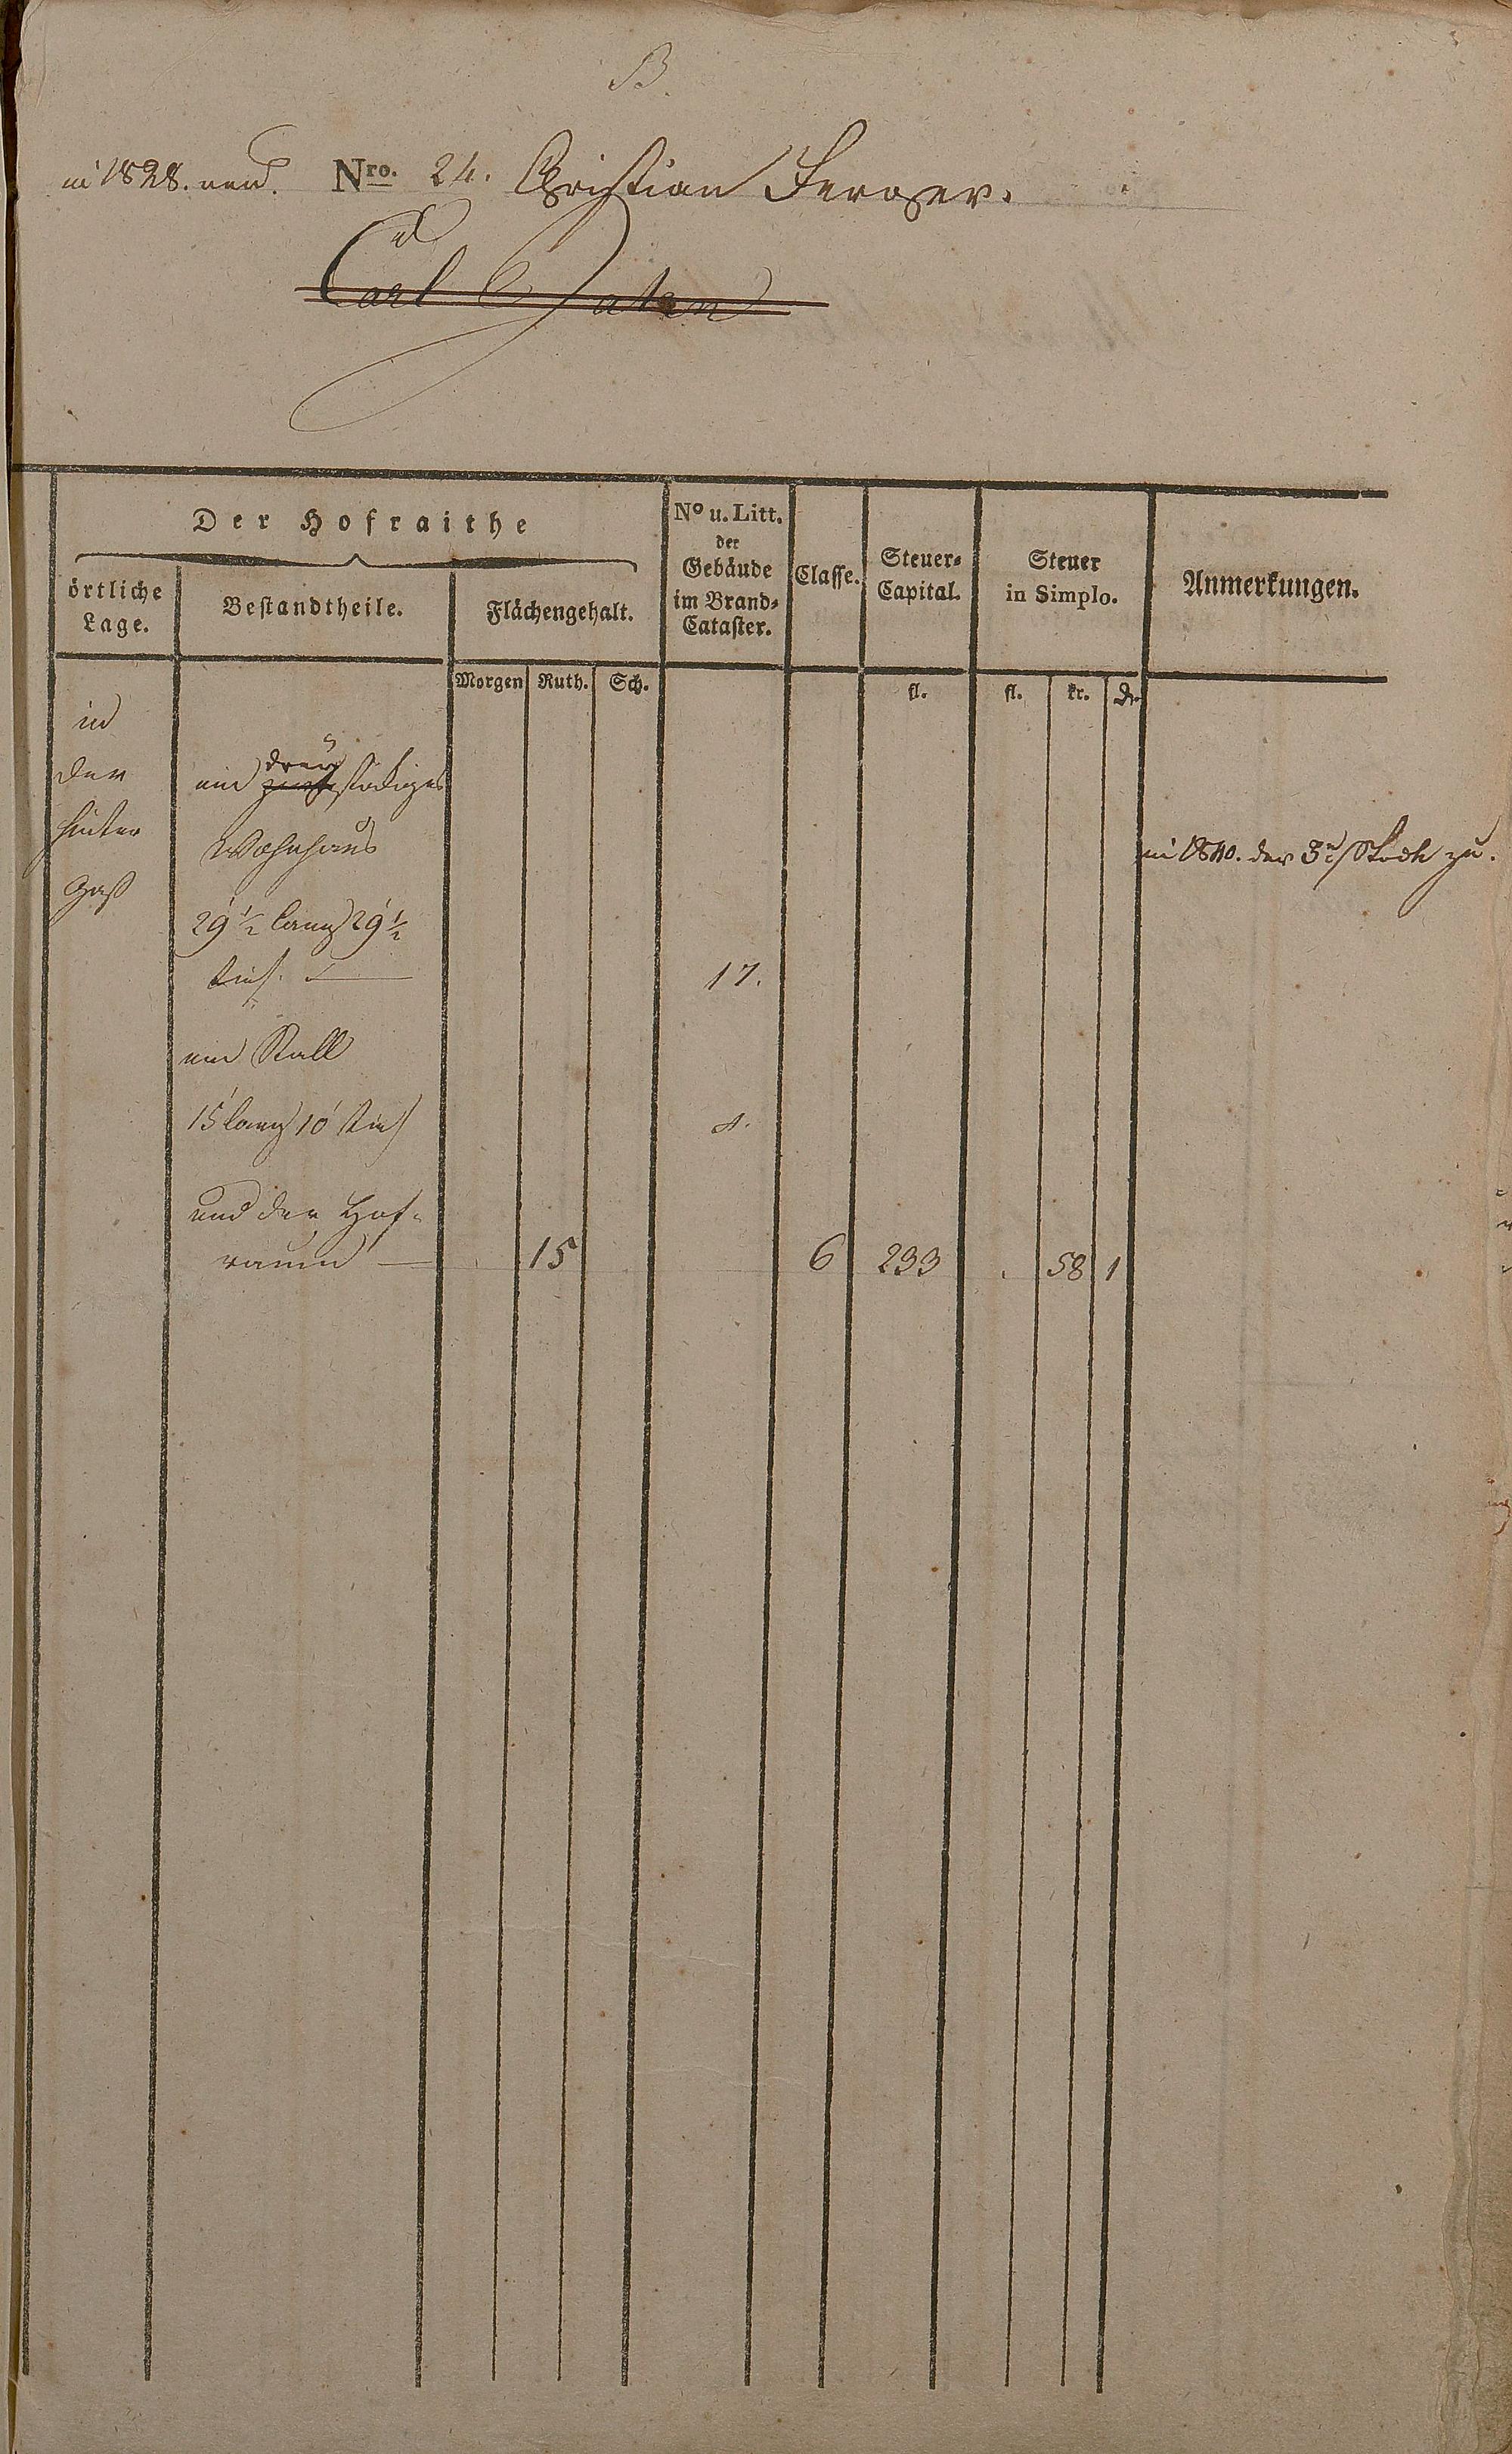 B.
in 1828. neu. Nro. 24. Christian Ferger.
Carl
Der Hofraithe
örtliche Lage.
Bestandtheile.
Flächengehalt.
No u. Litt. der Gebäude im Brand-Cataster.
Classe.
Steuer-Capital.
Steuer in Simplo.
Anmerkungen.
Morgen Ruth. Sch. fl. fl. kr. d.
in
der
hinter
Gaß
drey
ein zwe stökiges
Wohnhaus
in 1840. der 3te Stock zu.
29 1/2 lang 29 1/2
tief. 17.
ein Stall
15' lang 10' tief a.
und der Hof-
raum 15 6 233 . 58 1